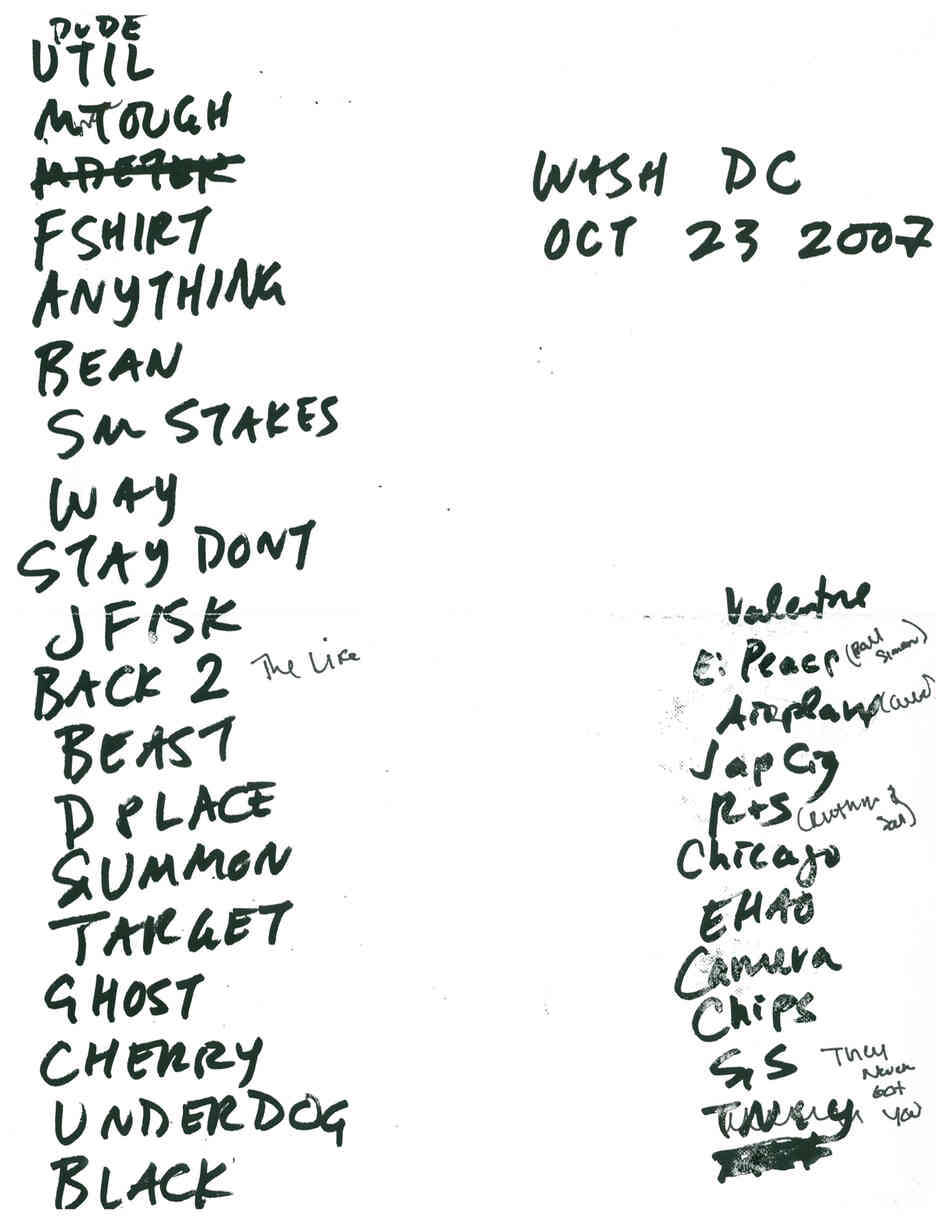 DUDE
UTIL
MTOUGH
FSHIRT
ANYTHING
BEAN
SM STAKES
WAY
STAY DONT
JFISK
BACK 2 The Like
BEAST
D PLACE
GUMMON
TARGET
GHOST
CHERRY
UNDERDOG
BLACK
WASH DC
OCT 23 2007
Valentine
E: Peace (Paul Simon)
Airplane
Jap Cig
R+S
Chicago
EHAO
Camera
Chips
They
Never
Got
You